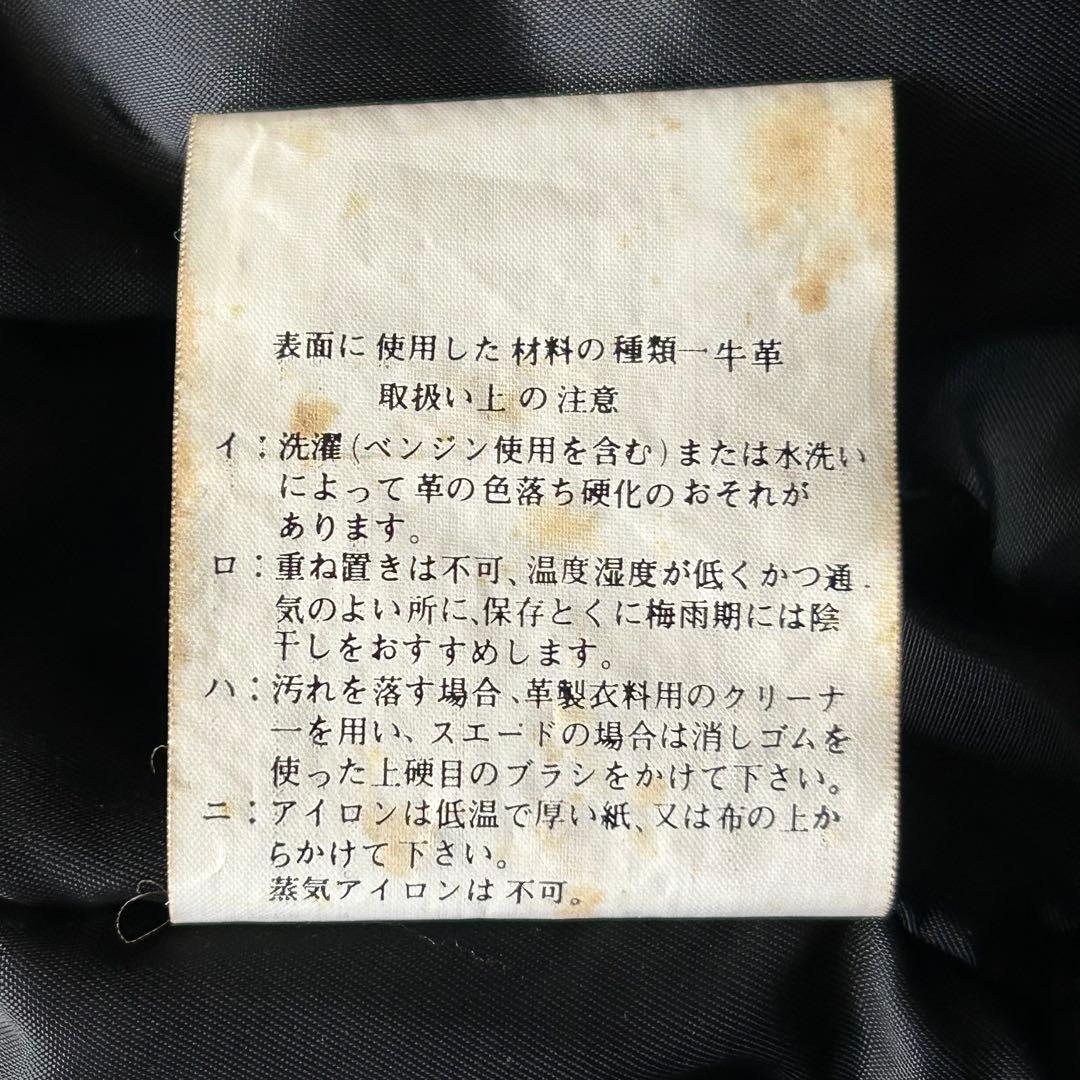 表面に使用した材料の種類一牛革
取扱い上の注意
イ：洗濯(ベンジン使用を含む)または水洗い
によって革の色落ち硬化のおそれが
あります。
ロ：重ね置きは不可、温度湿度が低くかつ通
気のよい所に、保存とくに梅雨期には陰
干しをおすすめします。
ハ：汚れを落す場合、革製衣料用のクリーナ
ーを用い、スエードの場合は消しゴムを
使った上硬目のブラシをかけて下さい。
ニ：アイロンは低温で厚い紙、又は布の上か
らかけて下さい。
蒸気アイロンは不可。